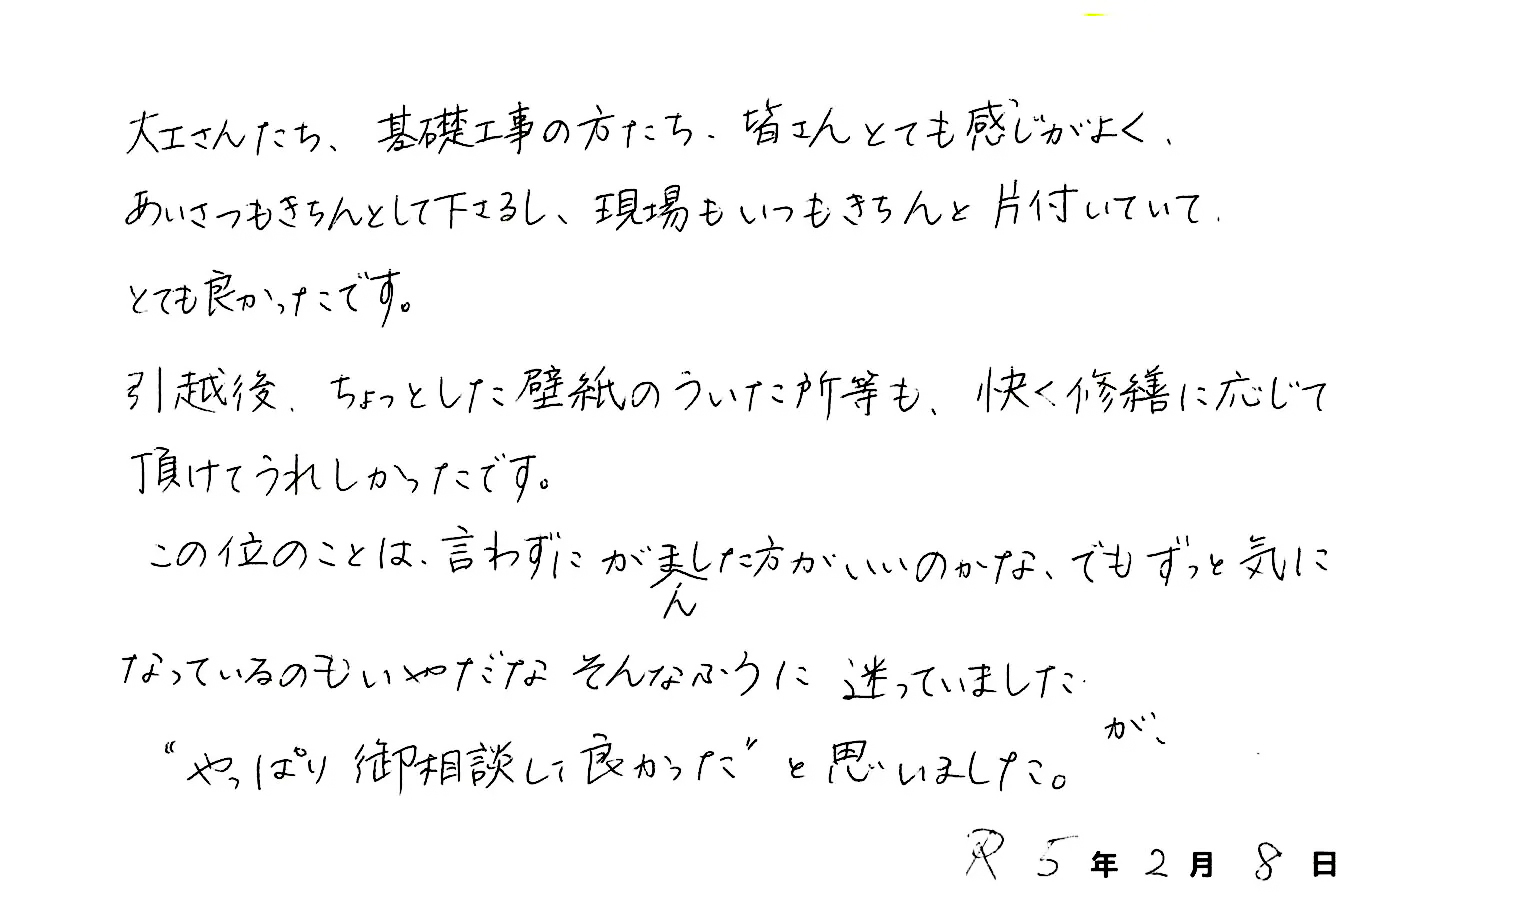 大工さんたち、基礎工事の方たち、皆さんとても感じがよく、
あいさつもきちんとして下さるし、現場もいつもきちんと片付いていて、
とても良かったです。
引越後、ちょっとした壁紙のういた所等も、快く修繕に応じて
頂けてうれしかったです。
この位のことは、言わずにがまんした方がいいのかな、でもずっと気に
なっているのもいやだな そんなふうに迷っていました
が、
“やっぱり御相談して良かった”と思いました。
R5年2月8日